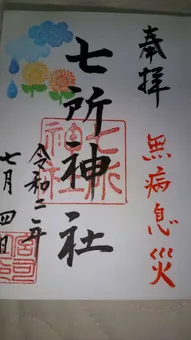 奉拝
無病息災
七所神社
令和二年
七月四日